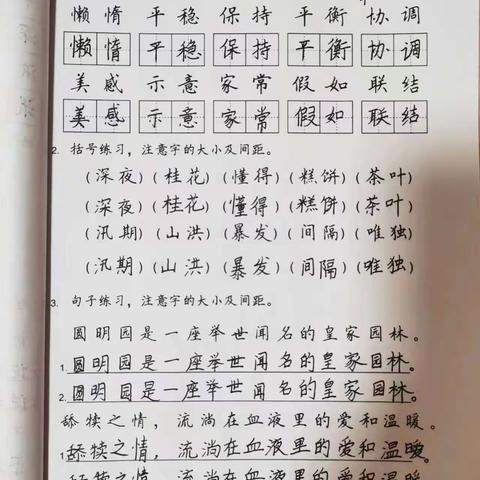 懒惰 平稳 保持 平衡 协调
懒惰 平稳 保持 平衡 协调
美感 示意 家常 假如 联结
美感 示意 家常 假如 联结
2. 括号练习，注意字的大小及间距。
(深夜)(桂花)(懂得)(糕饼)(茶叶)
(深夜)(桂花)(懂得)(糕饼)(茶叶)
(汛期)(山洪)(暴发)(间隔)(唯独)
(汛期)(山洪)(暴发)(间隔)(唯独)
3. 句子练习，注意字的大小及间距。
圆明园是一座举世闻名的皇家园林。
1. 圆明园是一座举世闻名的皇家园林。
2. 圆明园是一座举世闻名的皇家园林。
舔犊之情，流淌在血液里的爱和温暖。
1. 舔犊之情，流淌在血液里的爱和温暖。
舔犊之情，流淌在血液里的爱和温暖